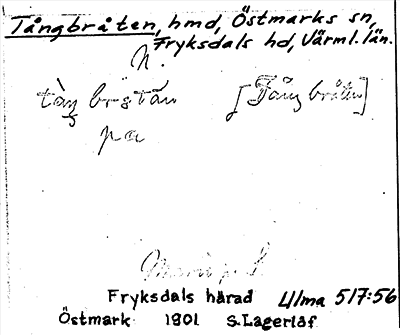 Tångbråten, hmd, Östmarks sn,
Fryksdals hd, Värml. län.
N.
[Tångbråten]
pa
Fryksdals härad Ulma 517:56
Östmark 1901 S. Lagerlöf